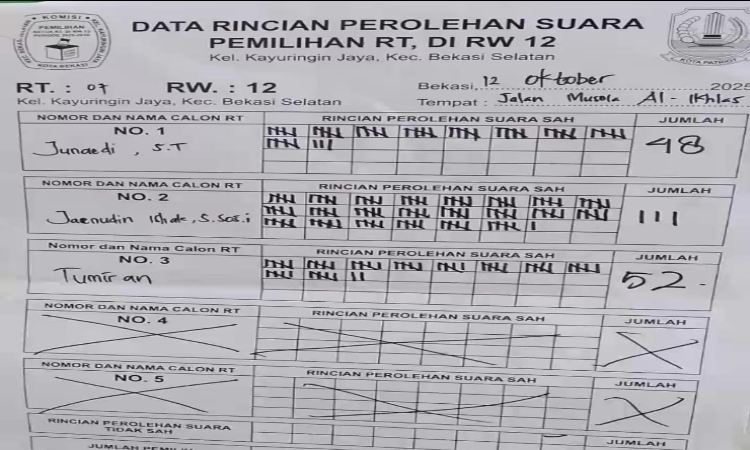 KOMISI
PEMILIHAN
KOTA BEKASI
KOTA PATRIOT
DATA RINCIAN PEROLEHAN SUARA
PEMILIHAN RT, DI RW 12
Kel. Kayuringin Jaya, Kec. Bekasi Selatan
RT. : 07 RW. : 12
Bekasi, 12 Oktober 2025
Kel. Kayuringin Jaya, Kec. Bekasi Selatan
Tempat : Jalan Musola Al - Ikhlas
NOMOR DAN NAMA CALON RT RINCIAN PEROLEHAN SUARA SAH JUMLAH
NO. 1
Junaedi, S.T 48
NOMOR DAN NAMA CALON RT RINCIAN PEROLEHAN SUARA SAH JUMLAH
NO. 2
Jaenudin Ishak, S.Sos.i 111
Nomor dan Nama Calon RT RINCIAN PEROLEHAN SUARA SAH JUMLAH
NO. 3
Tumiran 52
NOMOR DAN NAMA CALON RT RINCIAN PEROLEHAN SUARA SAH JUMLAH
NO. 4
NOMOR DAN NAMA CALON RT RINCIAN PEROLEHAN SUARA SAH JUMLAH
NO. 5
RINCIAN PEROLEHAN SUARA
TIDAK SAH
JUMLAH